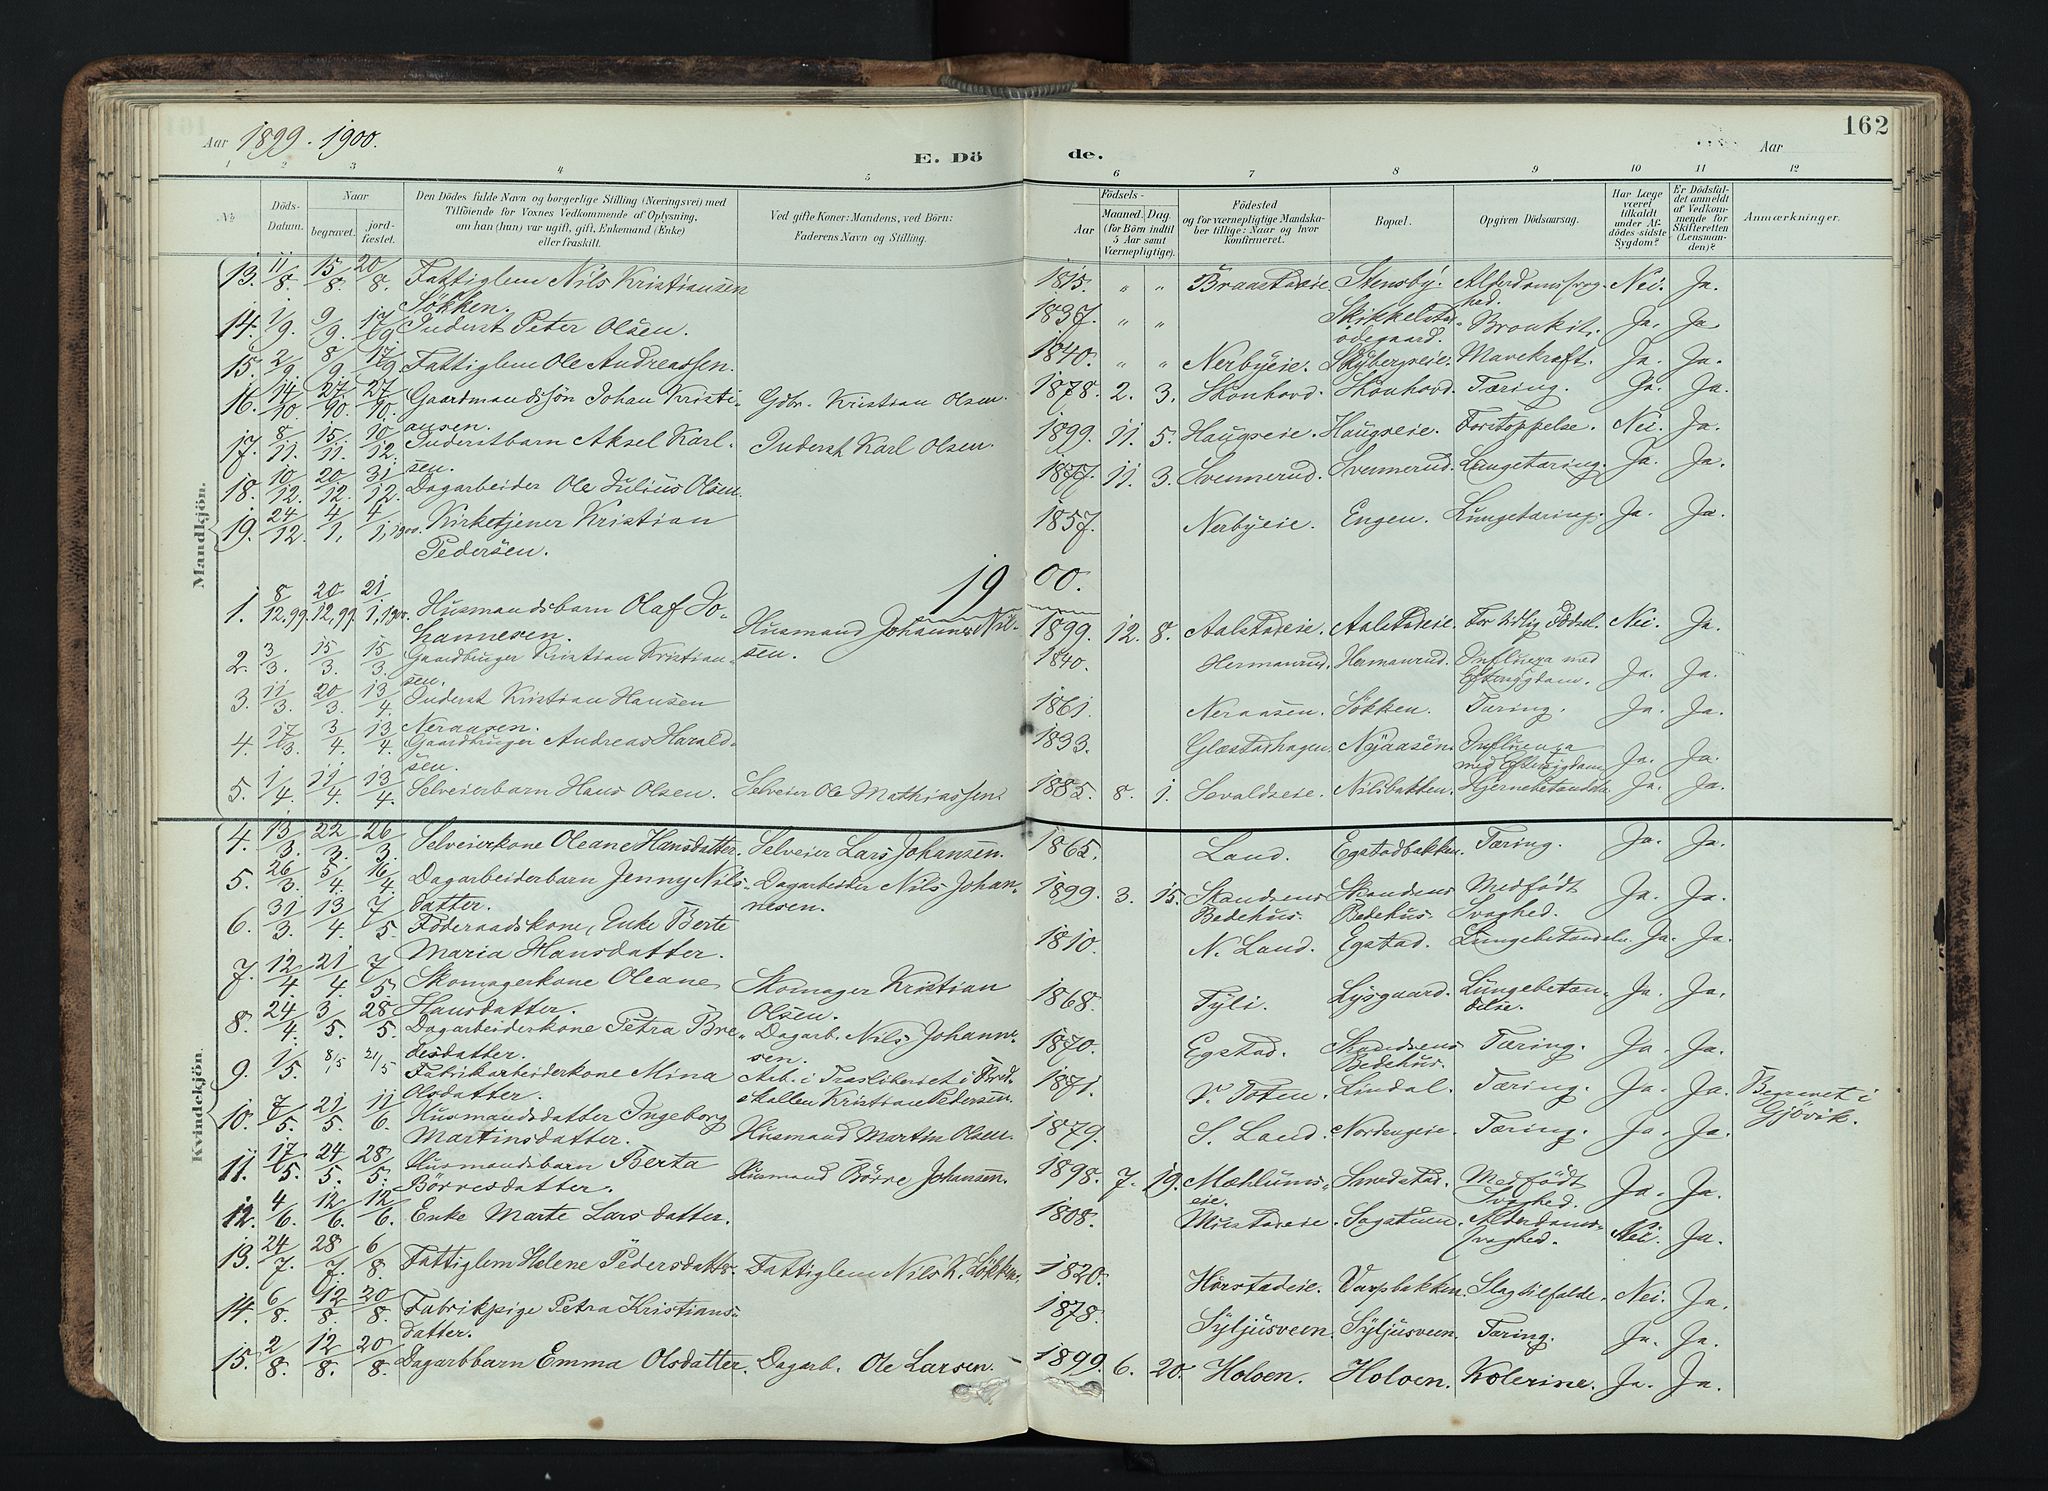 Aar 1899. 1900.
E. Dö de.
Aar
162
1 2 3 4 5 6 7 8 9 10 11 12
No
Döds-Datum.
Naar
begravet.
jord-fæstet.
Den Dödes fulde Navn og borgerlige Stilling (Næringsvei) med
Tilföiende for Voxnes Vedkommende af Oplysning,
om han (hun) var ugift, gift, Enkemand (Enke)
eller fraskilt.
Ved gifte Koner: Mandens, ved Börn:
Faderens Navn og Stilling.
Födsels-
Aar
Maaned. Dag.
(for Börn indtil
5 Aar samt
Værnepligtige).
Födested
og for værnepligtige Mandska-
ber tillige: Naar og hvor
konfirmeret.
Bopæl.
Opgiven Dödsaarsag.
Har Læge
været
tilkaldt
under Af-
dödes sidste
Sygdom?
Er Dödsfal-
det anmeldt
af Vedkom-
mende for
Skifteretten
(Lensman-
den)?
Anmærkninger.
Mandkjön.
13. 11/8. 15/8. 20/8. Fattiglem Nils Kristiansen 1815. " " Braastadeie Stensby. Alderdomssvag- Nei. Ja.
Sökken. hed.
14. 1/9. 9/9. 17/9. Inderst Peter Olsen. 1837. " " Skikkelstad- Bronkit. Ja. Ja
ödegaard.
15. 2/9. 8/9. 17/9. Fattiglem Ole Andreassen. 1840. " " Nerbyeie. Skybergseie. Mavekræft. Ja. Ja.
16. 14/10 27/10. 27/10. Gaardmandssön Johan Kristi- Gdbr. Kristian Olsen. 1878. 2. 3. Skonhovd. Skonhovd. Tæring. Ja. Ja.
ansen.
17. 8/11. 15/11. 10/12. Inderstbarn Aksel Karl- Inderst Karl Olsen. 1899. 11. 5. Haugseie. Haugseie. Forstoppelse. Nei. Ja.
sen.
18. 10/12. 20/12. 31/12. Dagarbeider Ole Julius Olsen. 1877. 11. 3. Svennerud. Svennerud. Lungetæring. Ja. Ja.
19. 24/12. 4/1. 4/1. 1900. Kirketjener Kristian 1857. Nerbyeie. Engen. Lungetæring. Ja. Ja.
Pedersen.
1900.
1. 8/12.99. 20/12.99. 21/1.1900. Husmandsbarn Olaf Jo- Husmand Johannes Nil- 1899. 12. 8. Aalstadeie. Aalstadeie. For tidlig Födsel. Nei. Ja.
hannesen. sen.
2. 3/3. 15/3. 15/3. Gaardbruger Kristian Kristian- 1840. Hermanrud. Hermanrud. Influenza med Ja. Ja.
sen. Eftersygdom.
3. 11/3. 20/3. 13/4. Inderst Kristian Hansen 1861. Neraasen. Sökken. Tæring. Ja. Ja.
Neraasen.
4. 17/3. 3/4. 13/4. Gaardbruger Andreas Harald- 1833. Glæstadhagen. Nyaasen. Influenza Ja. Ja.
sen. med Eftersygdom
5. 1/4. 11/4. 13/4. Selveierbarn Hans Olsen. Selveier Ole Mathiassen. 1885. 8. 1. Sevaldseie. Nilsbakken. Hjernebetændelse Ja. Ja.
Kvindekjön.
4. 13/3. 22/3. 26/3. Selveierkone Oleane Hansdatter. Selveier Lars Johansen. 1865. Land. Egstadbakken. Tæring. Ja. Ja.
5. 26/3. 5/4. 16/4. Dagarbeiderbarn Jenny Nils- Dagarbeider Nils Johan- 1899. 3. 15. Skandsens Skandsens Medfödt Ja. Ja.
datter. nesen. Bedehus. Bedehus. Svaghed.
6. 31/3. 13/4. 7/5. Föderaadskone, Enke Berte 1810. N. Land. Egstad. Lungebetændelse. Ja. Ja.
Maria Hansdatter.
7. 12/4. 21/4. 7/5. Skomagerkone Oleane Skomager Kristian 1868. Tyli. Lysgaard. Lungebetæn- Ja. Ja.
Hansdatter. Olsen. delse.
8. 24/4. 3/5. 28/5. Dagarbeiderkone Petra Bre- Dagarb. Nils Johanne- 1870. Egstad. Skandsens Tæring. Ja. Ja.
desdatter. sen. Bedehus.
9. 1/5 8/5 21/5 Fabrikarbeiderkone Mina Arb. i Træsliberiet i Bred- 1871. V. Toten. Lindal. Tæring. Ja. Ja. Begravet i
Olsdatter. skallen Kristian Pedersen. Gjövik.
10. 7/5. 21/5. 11/6. Husmandsdatter Ingeborg Husmand Martin Olsen. 1879. S. Land. Nordengeie. Tæring. Ja. Ja.
Martinsdatter.
11. 17/5. 24/5. 28/5. Husmandsbarn Berta Husmand Börre Johansen. 1898. 7. 19. Mæhlums- Smedstad. Medfödt Ja. Ja.
Börresdatter. eie. Svaghed.
12. 4/6. 12/6. 12/6. Enke Marte Larsdatter. 1808. Sagstuen. Alderdoms- Nei. Ja.
svaghed.
13. 24/7. 28/7. 6/8. Fattiglem Helene Pedersdatter. Fattiglem Nils K. Sökken. 1820. Horstadeie. Varpbakken. Slagtilfælde. Nei. Ja.
14. 6/8. 12/8. 20/8. Fabrikpige Petra Kristians- 1878. Syljusveen. Syljusveen. Tæring. Ja. Ja.
datter.
15. 2/8. 12/8. 20/8. Dagarbbarn Emma Olsdatter. Dagarb. Ole Larsen. 1899. 6. 20. Holoen. Holoen. Kolerine. Ja. Ja.